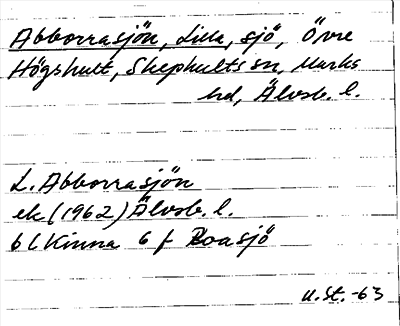 Abborrasjön, Lilla, sjö, Övre
Högshult, Skephults sn, Marks
hd, Älvsb. l.
L. Abborrasjön
ek (1962) Älvsb. l.
6 C Kinna 6 f Roasjö
U.St.-63